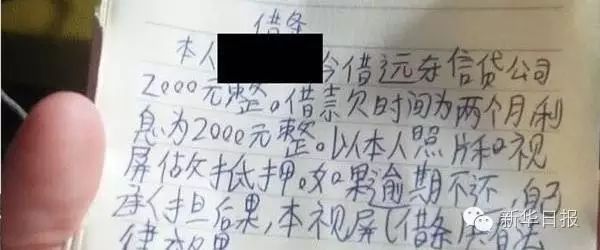 借条
本人 今借远夺信贷公司
2000元整。借款欠时间为两个月利
息为2000元整。以本人照片和视
屏做抵押。如果逾期不还,自己
承担后果,本视屏(借条
律效果
新华日报